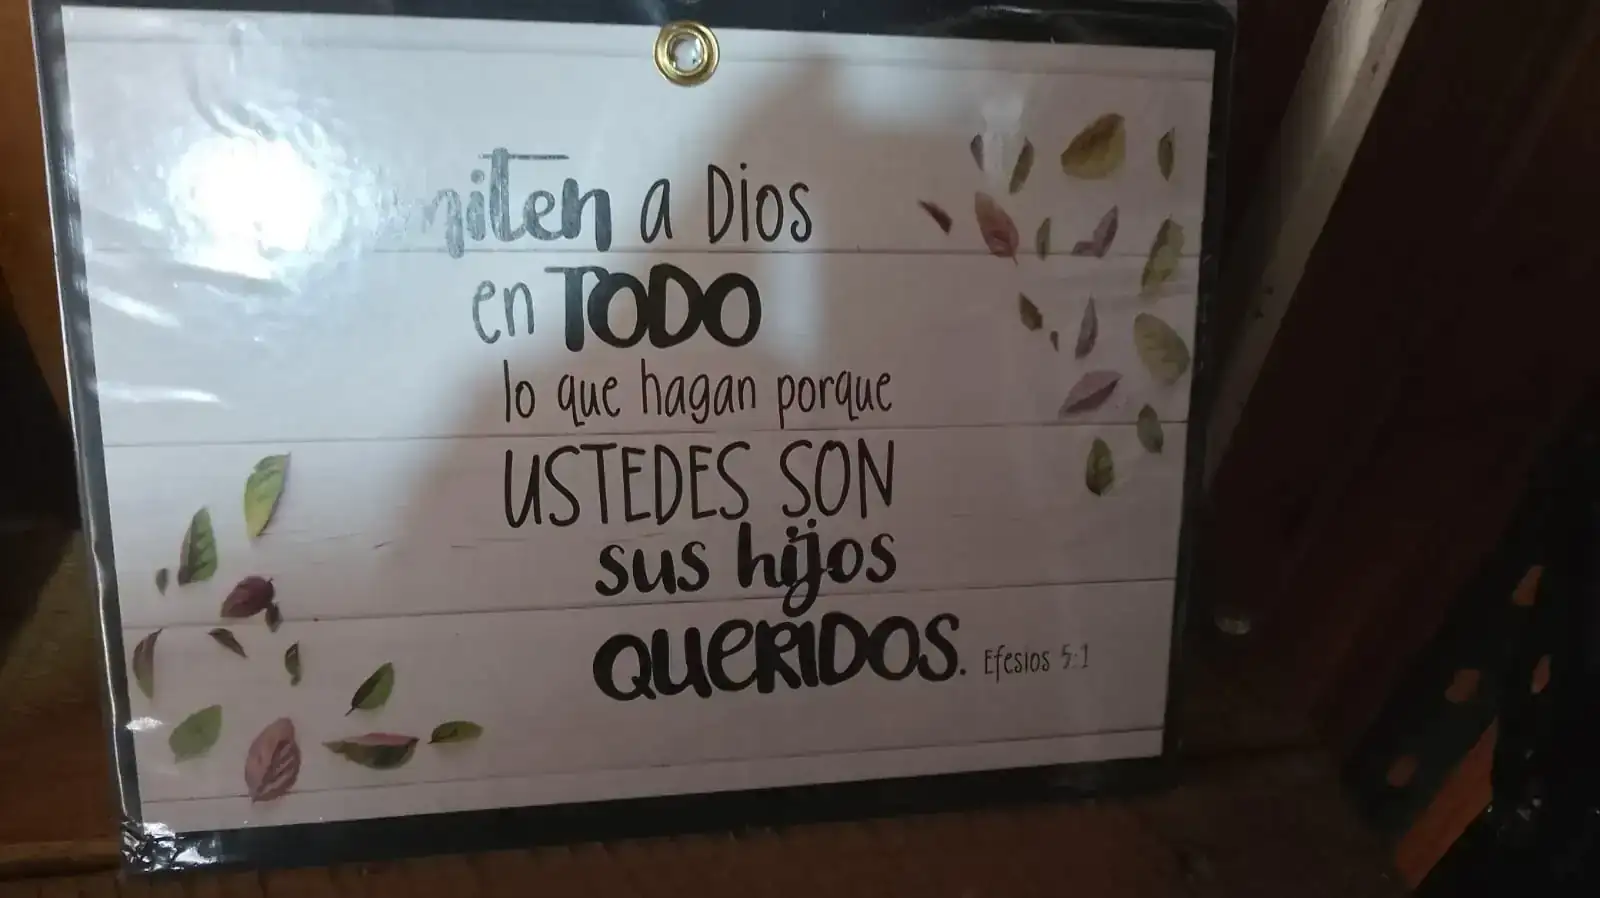 a Dios
en TODO
lo que hagan porque
USTEDES SON
sus hijos
QUERIDOS. Efesios 5:1